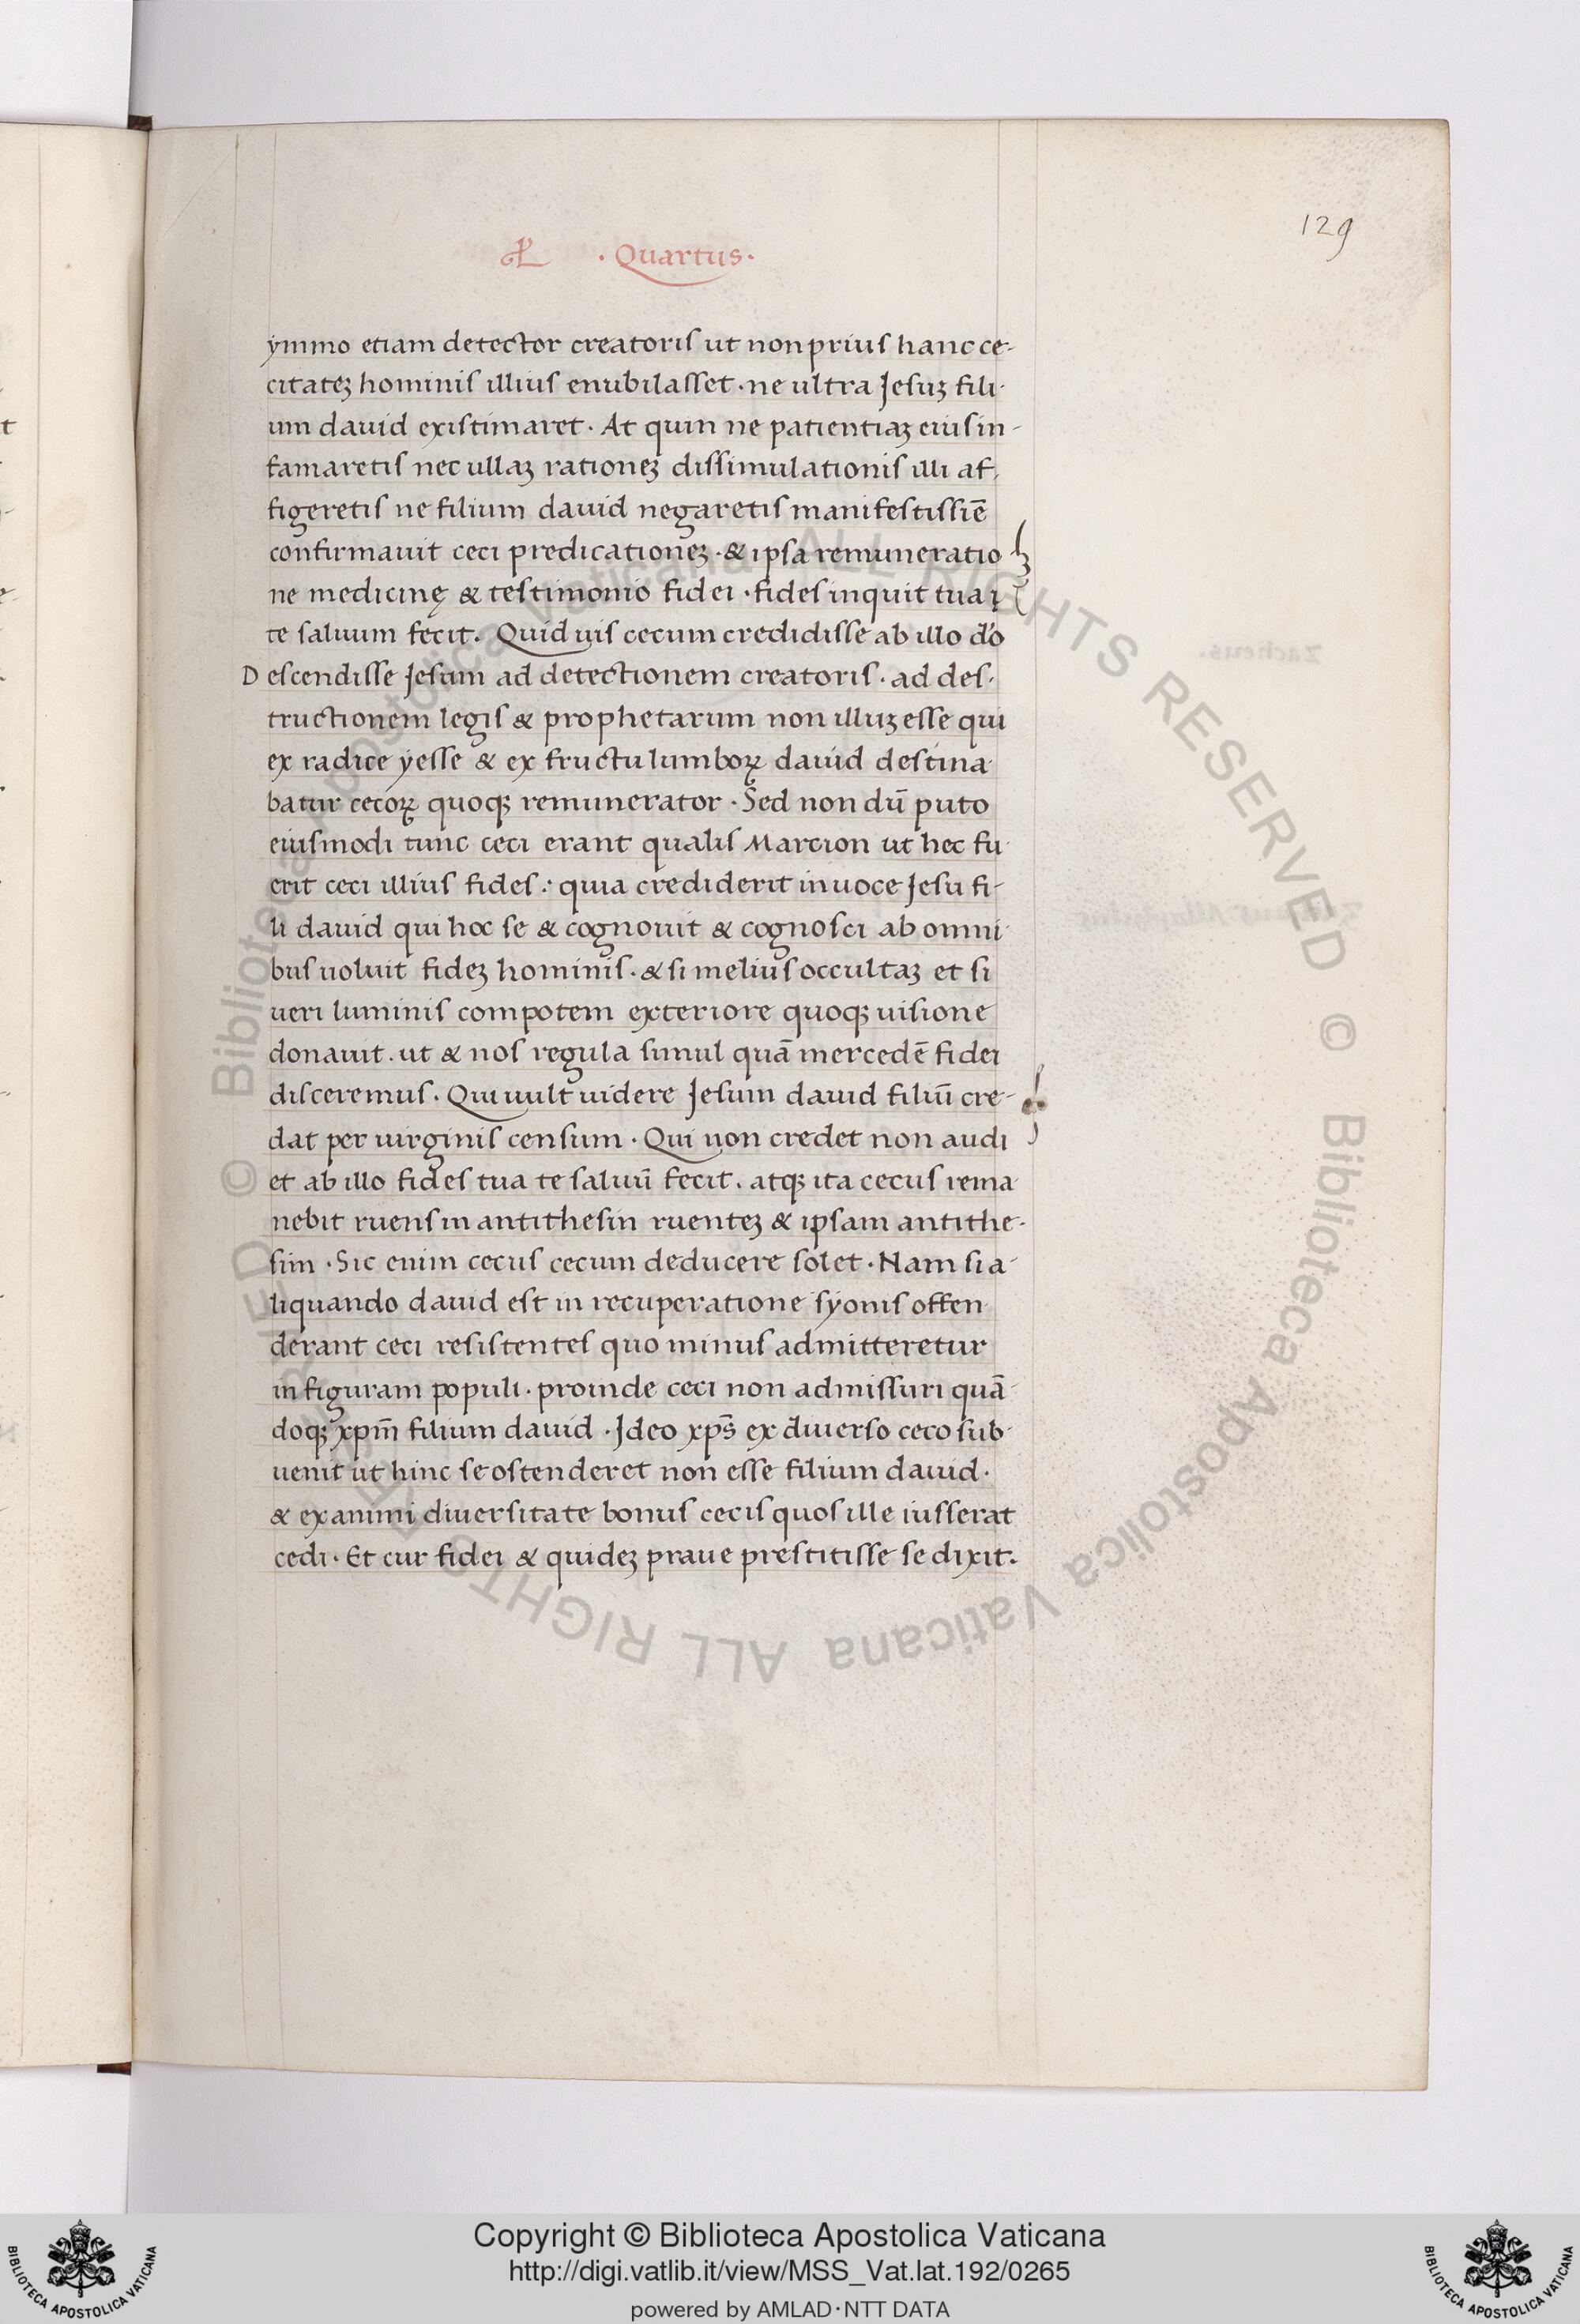 129
· Quartus ·
ymmo etiam detector creatoris ut non prius hanc ce-
citateʒ hominis illius enubilasset · ne ultra Jesuʒ fili-
um dauid existimaret · At quin ne patientiaʒ eius in-
famaretis nec ullaʒ rationeʒ dissimulationis illi af-
figeretis ne filium dauid negaretis manifestissīe
confirmauit ceci predicationeʒ · & ipsa remuneratio
ne medicinę & testimonio fidei · fides inquit tua
te saluum fecit. Quid uis cecum credidisse ab illo d'o
Descendisse Jesum ad detectionem creatoris · ad des-
tructionem legis & prophetarum non illuʒ esse qui
ex radice yesse & ex fructu lumboꝝ dauid destina-
batur cecoꝝ quoqʒ remunerator · Sed non dū puto
eiusmodi tunc ceci erant qualis Marcion ut hec fu-
erit ceci illius fides : quia crediderit in uoce Jesu fi-
li dauid qui hoc se & cognouit & cognosci ab omni-
bus uoluit fideʒ hominis · & si melius occultaʒ et si
ueri luminis compotem exteriore quoqʒ uisione
donauit · ut & nos regula simul quā mercedē fidei
disceremus · Qui uult uidere Jesum dauid filiū cre-
dat per uirginis censum · Qui non credet non audi
et ab illo fides tua te saluū fecit · atqʒ ita cecus rema-
nebit ruens in antithesin ruenteʒ & ipsam antithe-
sim · Sic enim cecus cecum deducere solet · Nam si a-
liquando dauid est in recuperatione syonis offen-
derant ceci resistentes quo minus admitteretur
in figuram populi · proinde ceci non admissuri quā-
doqʒ xpm̄ filium dauid · Jdeo xps̄ ex diuerso ceco sub-
uenit ut hinc se ostenderet non esse filium dauid ·
& ex animi diuersitate bonus cecis quos ille iusserat
cedi · Et cur fidei & quideʒ praue prestitisse se dixit.
© Biblioteca Apostolica Vaticana ALL RIGHTS RESERVED © Biblioteca Apostolica Vaticana ALL RIGHTS RESERVED
BIBLIOTECA APOSTOLICA VATICANA
Copyright © Biblioteca Apostolica Vaticana
http://digi.vatlib.it/view/MSS_Vat.lat.192/0265
powered by AMLAD·NTT DATA
BIBLIOTECA APOSTOLICA VATICANA